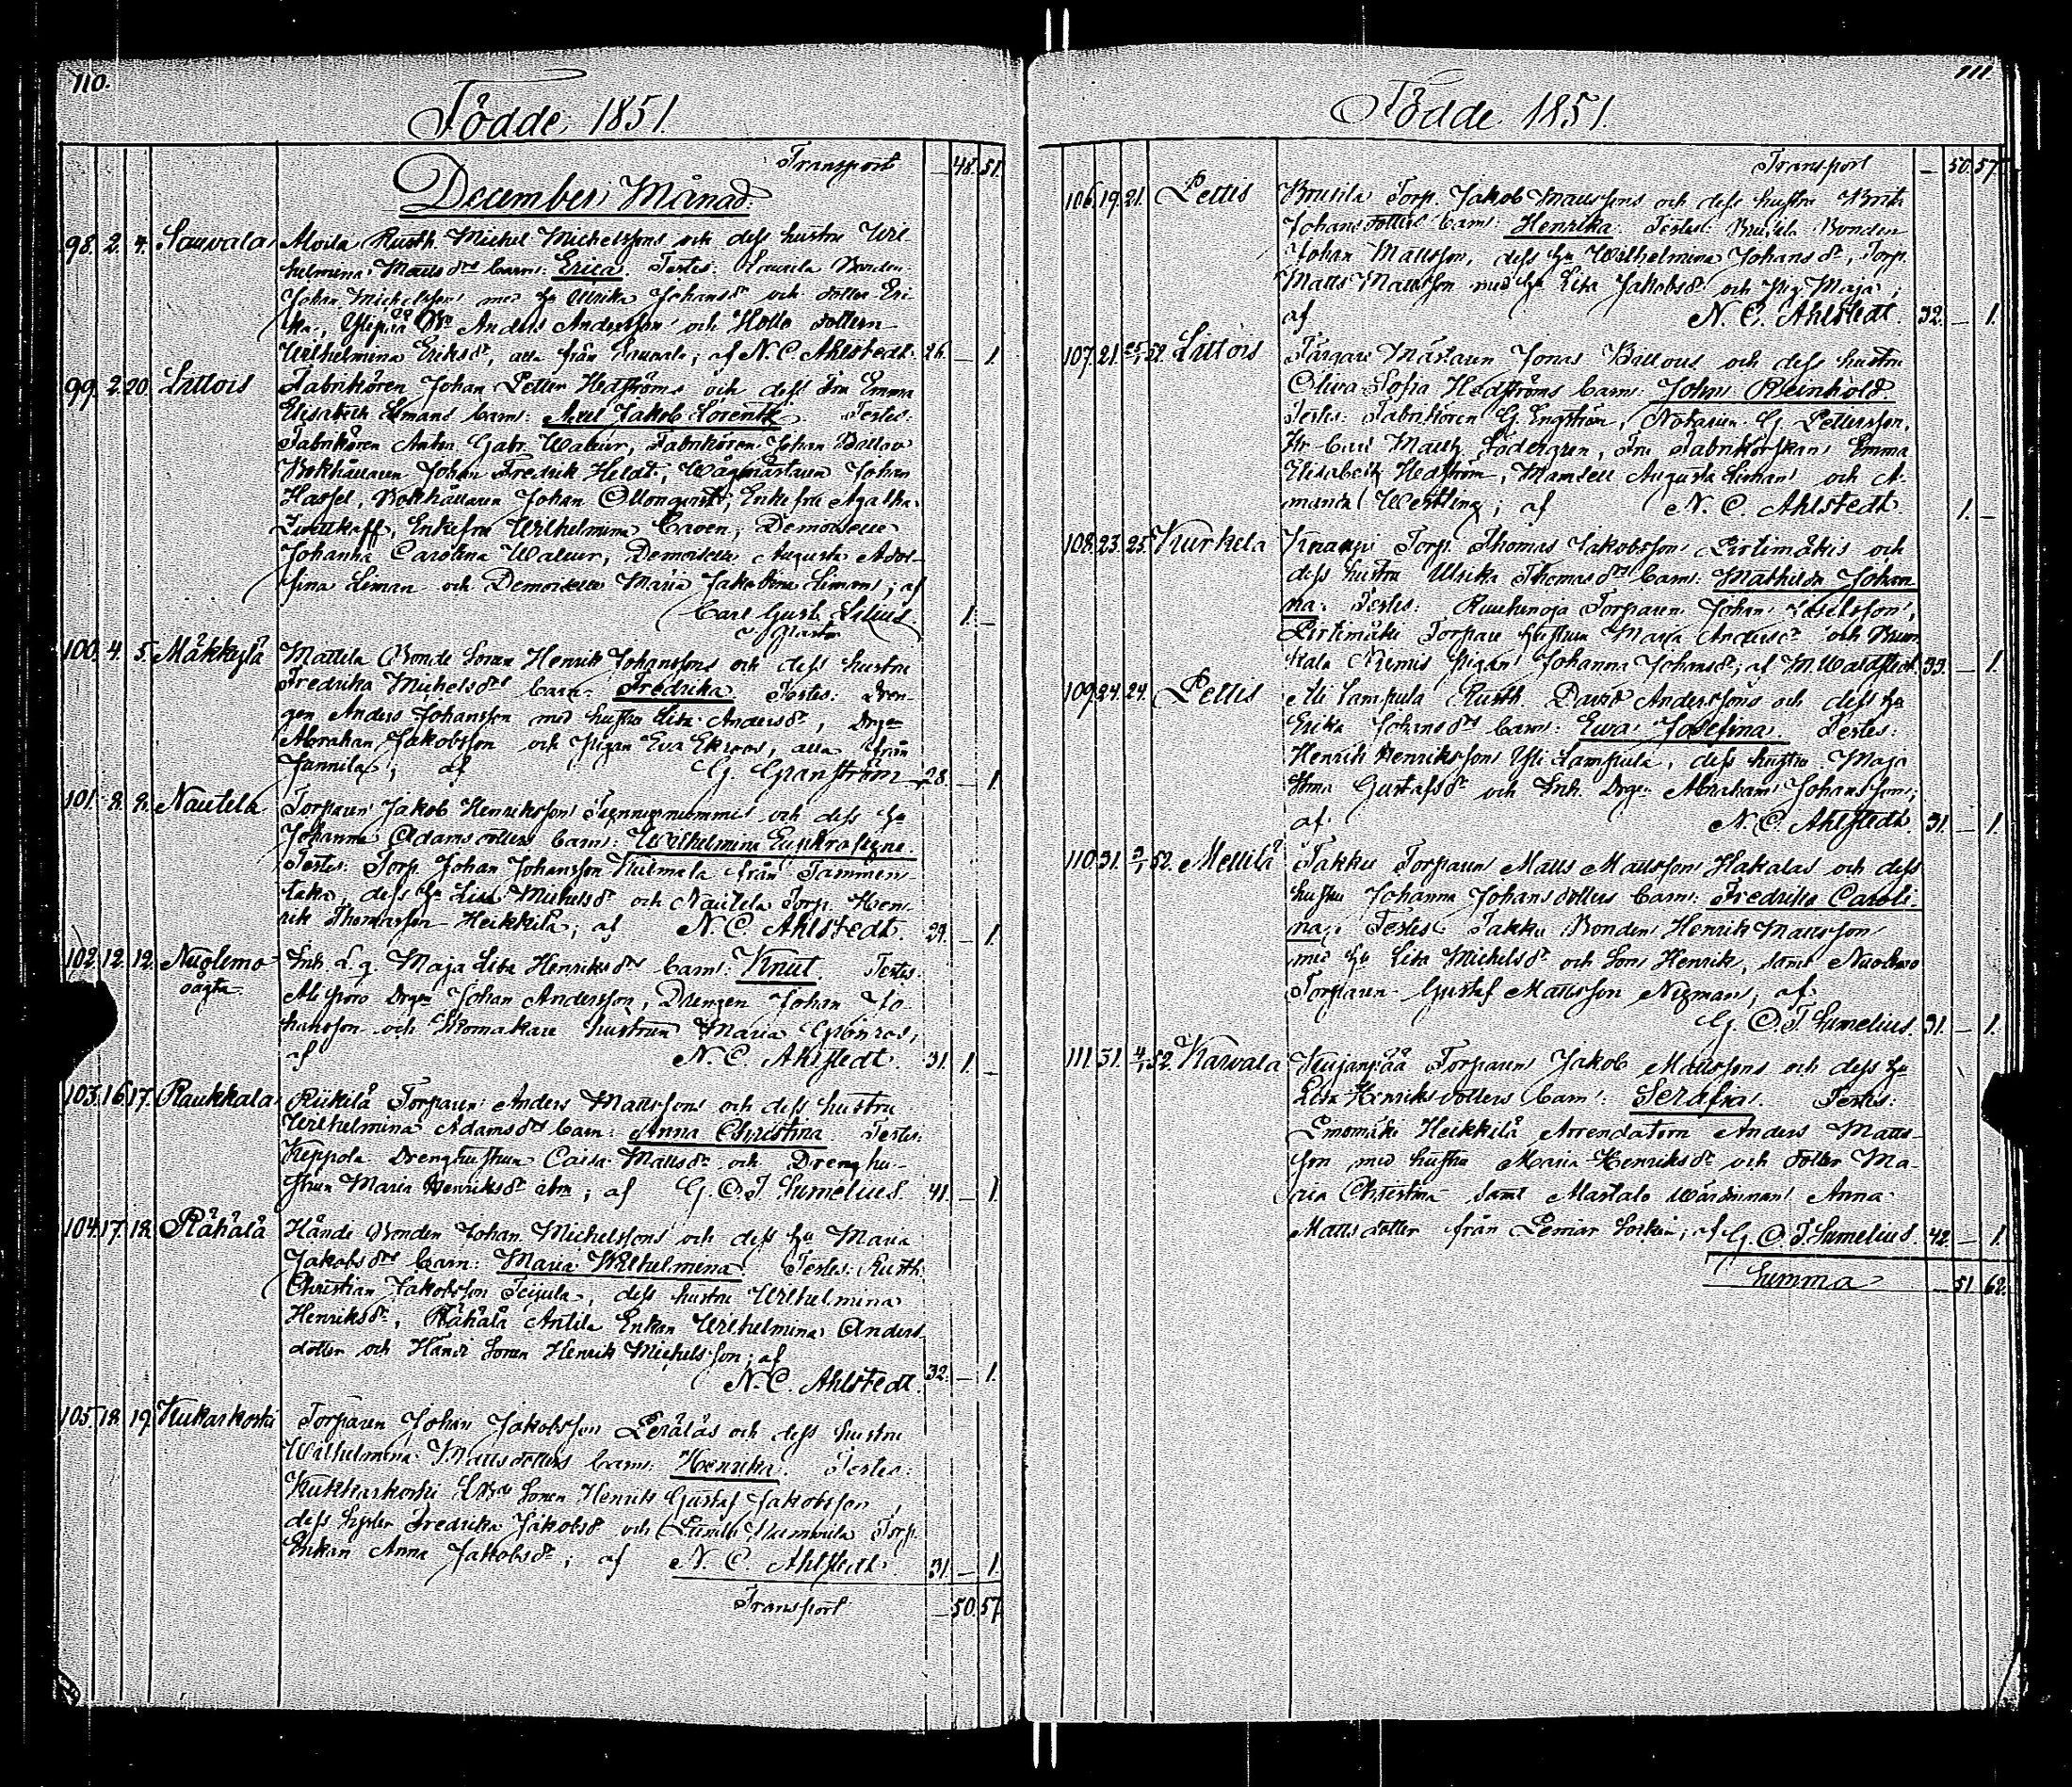 110.
Födde 1851.
Transport — 48. 51.
December Månad.
98. 2. 4. Sauvala Alvila Rusth. Michel Michelssons och dess hustru Wil-
helmina Matts drs barn: Erica. Testes: Bonden
Johan Michelsson med hu Ulrika Johansdr och dotter Eri-
ka, Anders Andersson och Hollo dottern
Wilhelmina Eriksdr, alla från Sauvala; af N. C. Ahlstedt. 26. — 1.
99. 2. 20. Littois Fabrikören Johan Petter Hedströms och dess Fru Emma
Elisabeth Limans barn: Axel Jakob Lorentz. Testes:
Fabrikören Anton Gabr. Waleur, Fabrikören Johan
Bokhållaren Johan Fredrik Heldt, Wågmästaren Johan
Hassel, Bokhållaren Johan Ollonqvist, Enkefru Agatha
Enkefru Wilhelmina Caven, Demoiselle
Johanna Carolina Waleur, Demoiselle Augusta Adol-
fina Liman och Demoiselle Maria Jakobina Liman; af
Carl Gust. Lilius.
Pastor 1. —
100. 4. 5. Mäkkylä Mattela Bonde Sonen Henrik Johanssons och dess hustru
Fredrika Michelsdrs barn: Fredrika. Testes: Dren-
gen Anders Johansson med hustru Lisa Andersdr, Drgen
Abraham Jakobsson och pigan Eva Ekroos, alla från
Junnila; af G. Granström 28. — 1.
101. 8. 9. Nautela Torparen Jakob Henriksson och dess hu
Johanna Adamsdotters barn: Wilhelmina Euphrosyne.
Testes: Torp. Johan Johansson Kuumala från Tammen-
taka, dess hu Lisa Michelsdr och Nautela Torp. Hen-
rik Thomasson Heikkilä; af N. C. Ahlstedt. 29. — 1.
102. 12. 12. Nuolemo Inh. L. q. Maja Lisa Henriksdrs barn: Knut. Testes:
oägta. Ali Drgen Johan Andersson, Drengen Johan Jo-
hansson och Skomakare hustrun Maria Grönroos,
af N. C. Ahlstedt. 31. 1. —
103. 16. 17. Raukkala Riikilä Torparen Anders Mattssons och dess hustru
Wilhelmina Adamsdrs barn: Anna Christina. Testes:
Keppola Drenghustrun Caisa Mattsdr och Drenghu-
strun Maria Henriksdr ibm; af G. O. T. Sumelius. 41. — 1.
104. 17. 18. Rähälä Händi Bonden Johan Michelssons och dess hu Maria
Jakobsdrs barn: Maria Wilhelmina. Testes: Rusth.
Christian Jakobsson dess hustru Wilhelmina
Henriksdr, Rähälä Antila Enkan Wilhelmina Anders-
dotter och Händi Sonen Henrik Michelsson; af
N. C. Ahlstedt. 32. — 1.
105. 18. 19. Kukarkoski Torparen Johan Jakobsson Peräläs och dess hustru
Wilhelmina Mattsdotters barn: Henrika. Testes:
Kukkarkoski Sonen Henrik Gustaf Jakobsson,
dess Syster Fredrika Jakobsdr och Torp.
Enkan Anna Jakobsdr; af N. C. Ahlstedt. 31. — 1.
Transport — 50. 57.
111.
Födde 1851.
Transport — 50. 57.
106. 19. 21. Pettis Brusila Torp. Jakob Mattssons och dess hustru Brita
Johansdotters barn: Henrika. Testes: Brusila Bonden
Johan Mattsson, dess hu Wilhelmina Johansdr, Torp.
Matts Mattsson med hu Lisa Jakobsdr och pig. Maja;
af N. C. Ahlstedt. 32. — 1.
107. 21. 52. Littois Färgare Mästaren Jonas Billous och dess hustru
Oliva Sofia Hedströms barn: John Reinhold.
Testes: Fabrikören G. Engström, Notarien G. Pettersson,
Hr Carl Matts Södergren, Fru Fabrikörskan Emma
Elisabeth Hedström, Mamsell Augusta Liman och A-
manda Westling; af N. C. Ahlstedt 1. —
108. 23. 25. Kurkela Knaapi Torp. Thomas Jakobsson Pirtimäkis och
dess hustru Ulrika Thomasdrs barn: Mathilda Johan-
na. Testes: Ruuhenoja Torparen Johan
Pirtimäki Torpare hustrun Maria Andersdr och
Niemis pigan Johanna Johansdr; af M. Wardstedt. 33. — 1.
109. 24. 24. Pettis Ali Lampula Rusth. David Anderssons och dess hu
Erika Johansdrs barn: Ewa Josefina. Testes:
Henrik Henriksson Yli Lampula, dess hustru Maja
Stina Gustafsdr och Inh. Drgen Abraham Johansson;
af N. C. Ahlstedt. 31. — 1.
110. 31. 2/1 52. Mettilä Takku Torparen Matts Mattsson Hakalas och dess
hustru Johanna Johansdotters barn: Fredrika Caroli-
na. Testes: Takku Bonden Henrik Mattsson
med hu Lisa Michelsdr och Son Henrik, samt Nuolemo
Torparen Gustaf Mattsson Nyman; af
G. O. T. Sumelius. 31. — 1.
111. 31. 4/1 52. Karvala Kujanpää Torparen Jakob Mattssons och dess hu
Lisa Henriksdotters barn: Serafia. Testes:
Linomäki Heikkilä Arrendatorn Anders Matts-
son med hustru Maria Henriksdr och dotter Ma-
ria Christina samt Martalo wärdinnan Anna
Mattsdotter från Lemiär Socken; af G. O. T. Sumelius. 42. — 1.
Summa 51. 62.